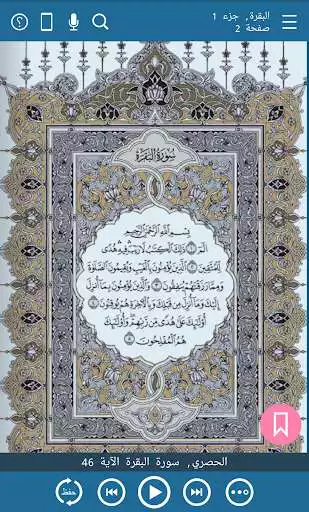 البقرة, جزء 1
صفحة 2
سُورَةُ الْبَقَرَةِ
بِسْمِ اللَّهِ الرَّحْمَٰنِ الرَّحِيمِ
الٓمٓ ۝١ ذَٰلِكَ الْكِتَٰبُ لَا رَيْبَ فِيهِ هُدًى
لِّلْمُتَّقِينَ ۝٢ الَّذِينَ يُؤْمِنُونَ بِالْغَيْبِ وَيُقِيمُونَ الصَّلَوٰةَ
وَمِمَّا رَزَقْنَٰهُمْ يُنفِقُونَ ۝٣ وَالَّذِينَ يُؤْمِنُونَ بِمَآ أُنزِلَ
إِلَيْكَ وَمَآ أُنزِلَ مِن قَبْلِكَ وَبِالْءَاخِرَةِ هُمْ يُوقِنُونَ ۝٤
أُو۟لَٰٓئِكَ عَلَىٰ هُدًى مِّن رَّبِّهِمْ وَأُو۟لَٰٓئِكَ
هُمُ الْمُفْلِحُونَ ۝٥
الحصري, سورة البقرة الآية 46
حفظ